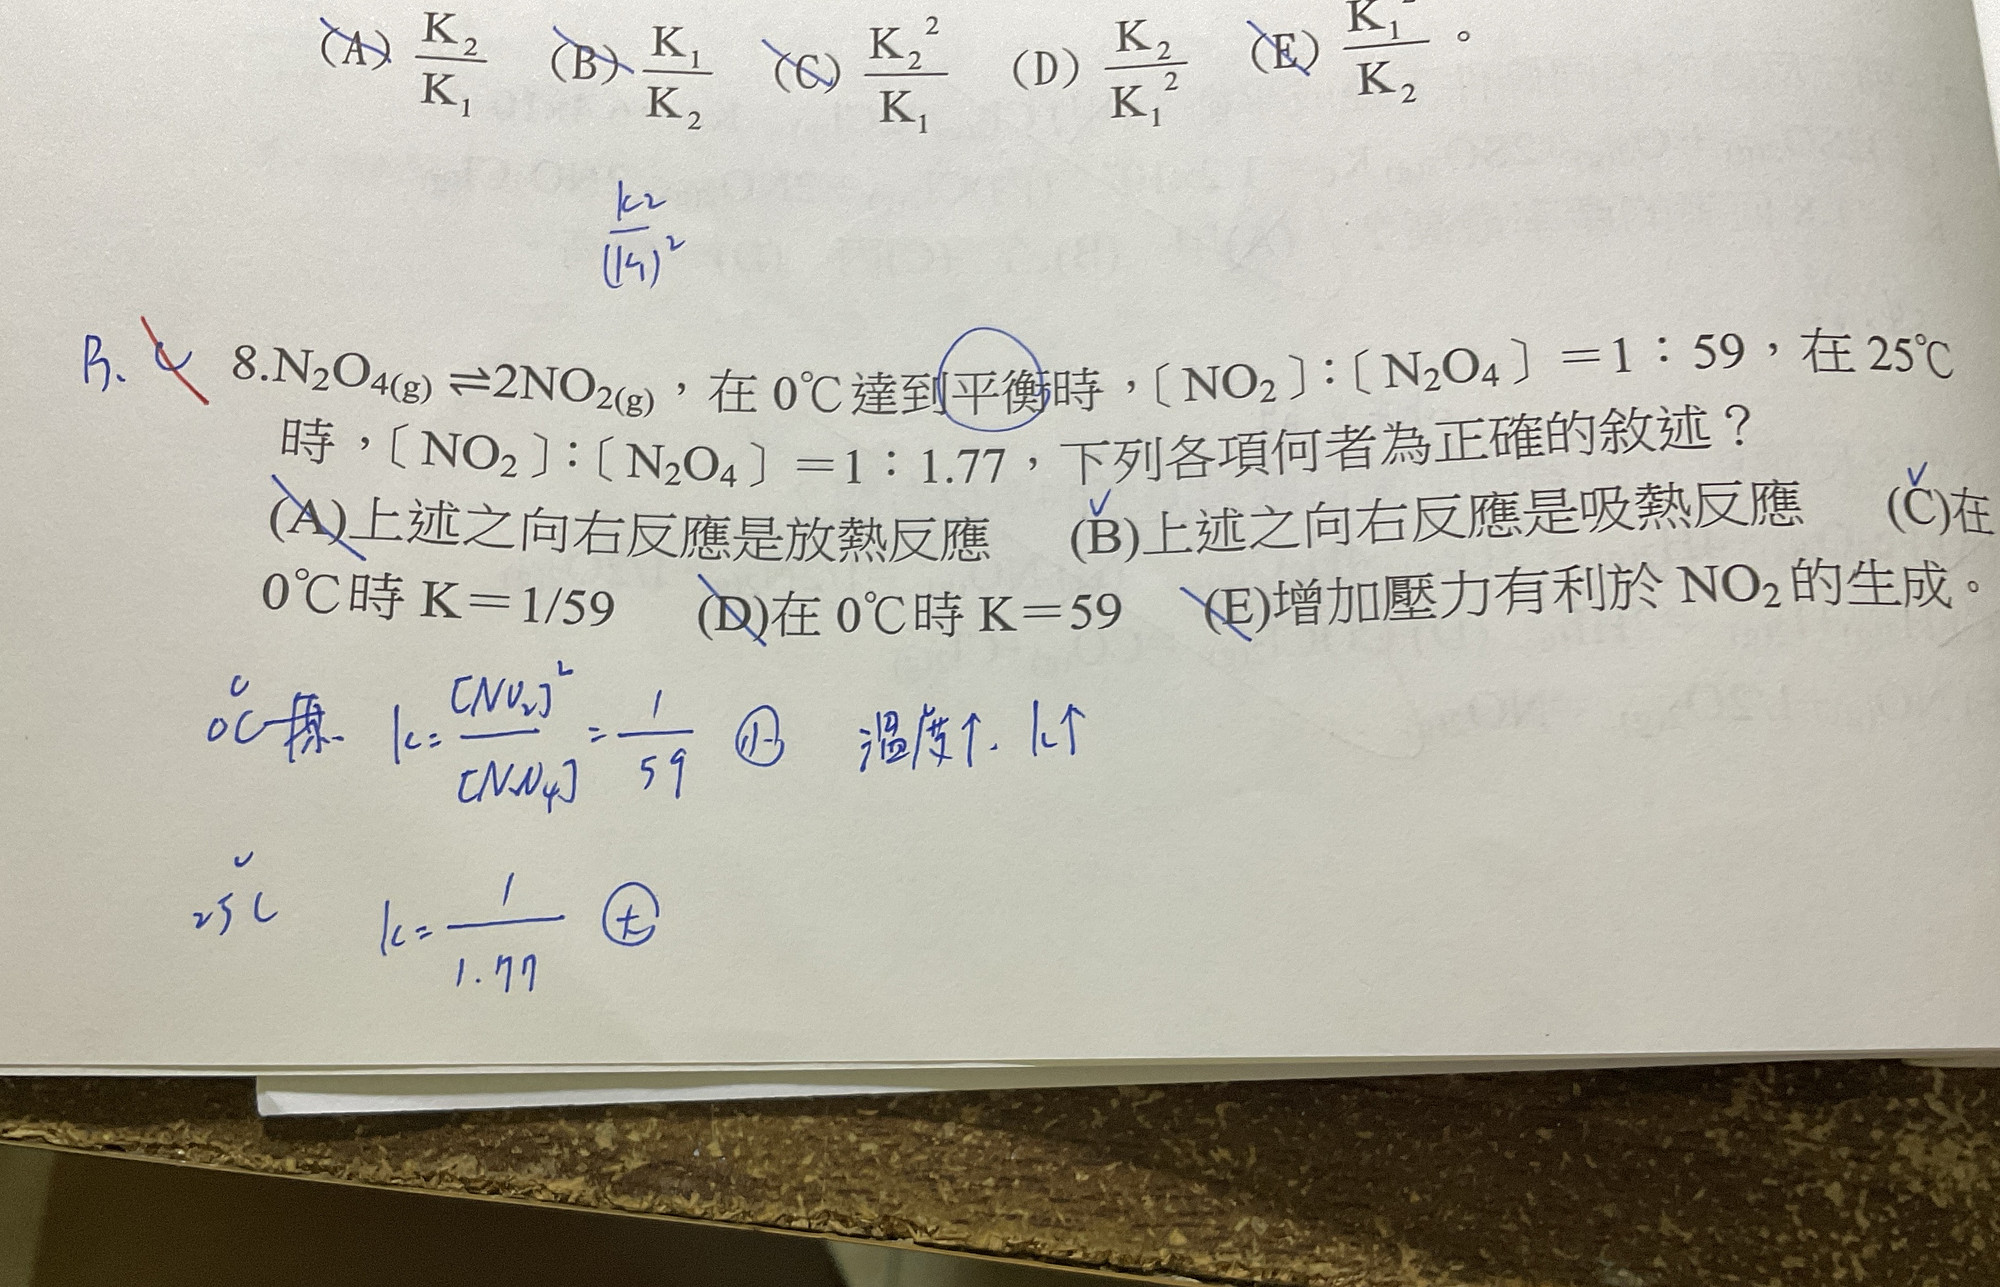 (A) K₂/K₁ (B) K₁/K₂ (C) K₂²/K₁ (D) K₂/K₁² (E) K₁²/K₂。
k2/(k1)²
B. C 8.N₂O₄(g)⇌2NO₂(g)，在0℃達到平衡時，〔NO₂〕：〔N₂O₄〕＝1：59，在25℃
時，〔NO₂〕：〔N₂O₄〕＝1：1.77，下列各項何者為正確的敘述？
(A)上述之向右反應是放熱反應 (B)上述之向右反應是吸熱反應 (C)在
0℃時K＝1/59 (D)在0℃時K＝59 (E)增加壓力有利於NO₂的生成。
0℃ k=[NO₂]²/[N₂O₄]=1/59 小 溫度↑. k↑
25℃ k=1/1.77 大